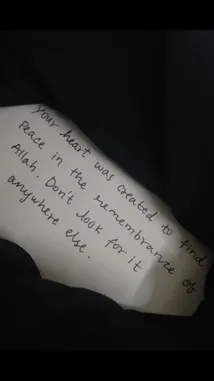 Your heart was created to find
Peace in the remembrance of
Allah. Don't look for it
anywhere else.